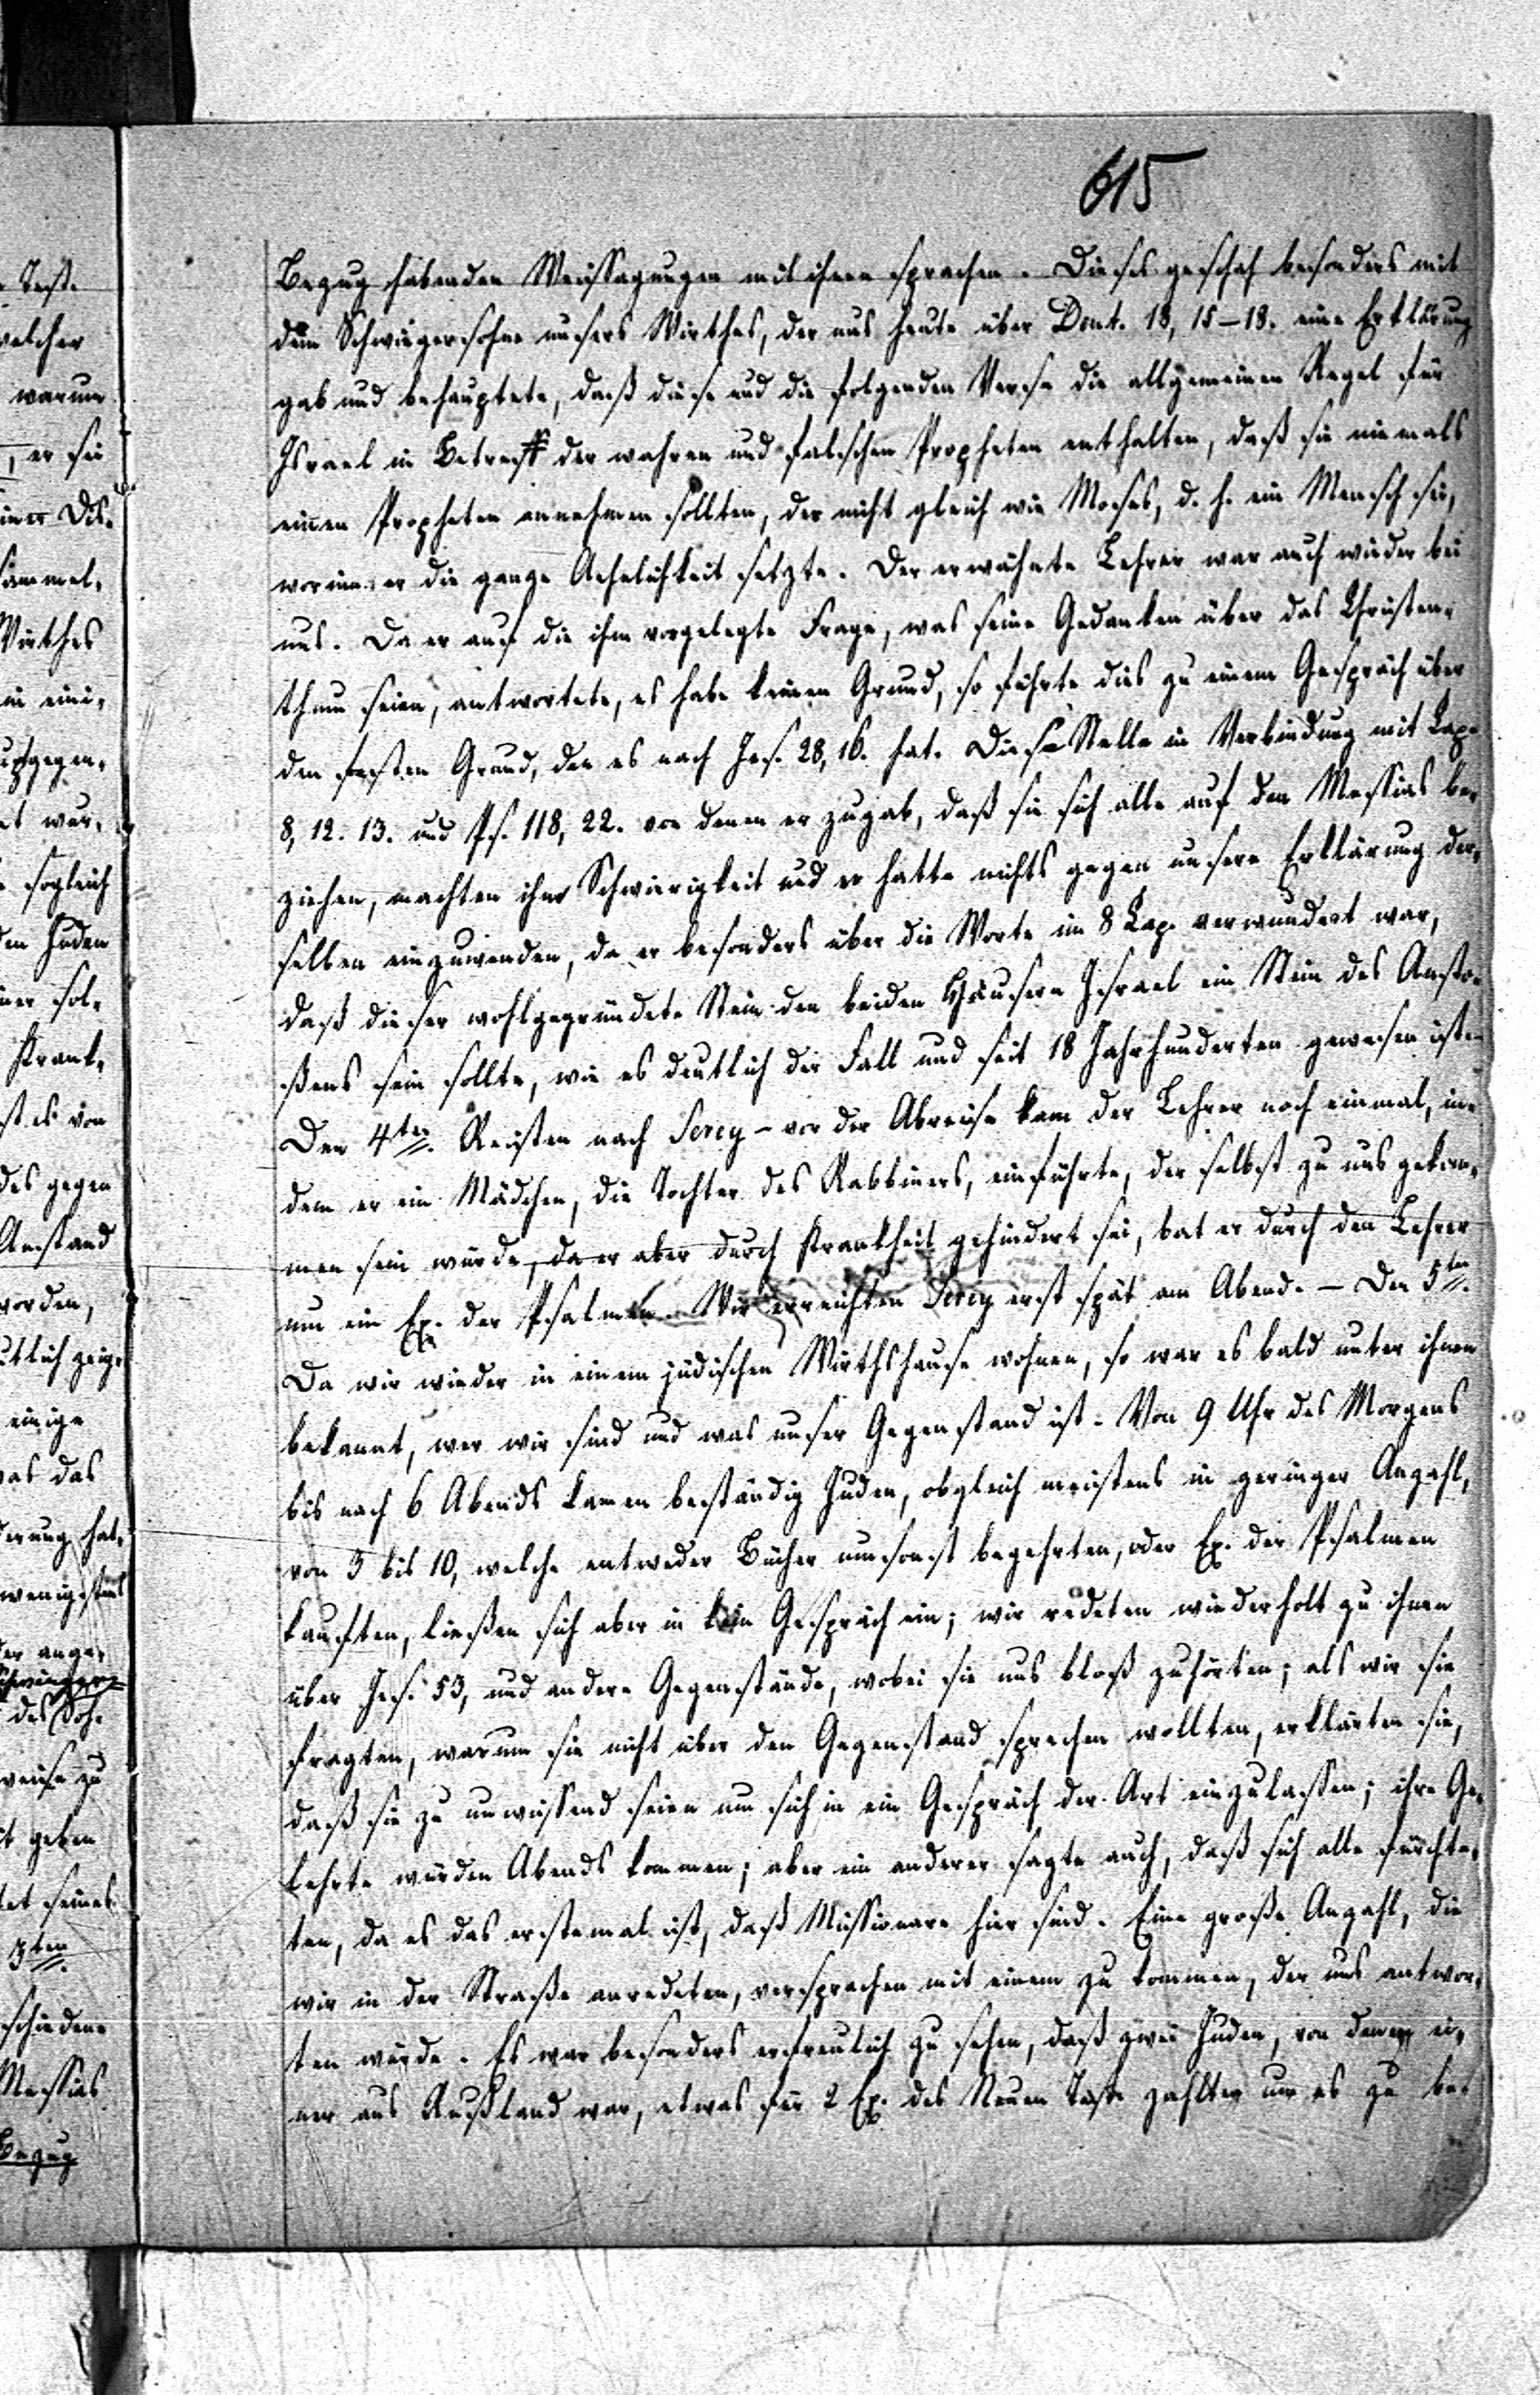 615
Bezug habenden Weissagungen mit ihnen sprachen. Dieses geschah besonders mit
dem Schwiegersohne unsers Wirthes, der uns heute über Deut. 18, 15–18. eine Erklärung
gab und behauptete, daß diese und die folgenden Verse die allgemeinen Regel für
Israel in Betreff der wahren und falschen Propheten enthalten, daß sie niemals
einen Propheten annehmen sollten, der nicht gleich wie Moses, d. h. ein Mensch sei,
worinn er die ganze Aehnlichkeit setzte. Der erwähnte Lehrer war auch wieder bei
uns. Da er auf die ihm vorgelegte Frage, was seine Gedanken über das Christen-
thum seien, antwortete, es habe keinen Grund, so führte dies zu einem Gespräch über
den festen Grund, den es nach Jes. 28, 16. hat. Diese Stelle in Verbindung mit Cap.
8, 12. 13. und Ps. 118, 22. von denen er zugab, daß sie sich alle auf den Messias be-
ziehen, machten ihm Schwierigkeit und er hatte nichts gegen unsere Erklärung der-
selben einzuwenden, da er besonders über die Worte im 8 Cap. verwundert war,
daß dieser wohlgegründete Stein den beiden Häusern Israel ein Stein des Ansto-
ßens sein sollte, wie es deutlich der Fall und seit 18 Jahrhunderten gewesen ist.
Den 4ten. Reisten nach Serey – vor der Abreise kam der Lehrer noch einmal, in-
dem er ein Mädchen, die Tochter des Rabbiners, einführte, der selbst zu uns gekom-
men sein würde, da er aber durch Krankheit gehindert sei, bat er durch den Lehrer
um ein Ex. der Psalmen. Wir erreichten Serey erst spät am Abend. – Den 5ten.
Da wir wieder in einem jüdischen Wirthshause wohnen, so war es bald unter ihnen
bekannt, wer wir sind und was unser Gegenstand ist. Von 9 Uhr des Morgens
bis nach 6 Abends kamen beständig Juden, obgleich meistens in geringer Anzahl,
von 3 bis 10, welche entweder Bücher umsonst begehrten, oder Ex. der Psalmen
kauften, ließen sich aber in kein Gespräch ein; wir redeten wiederholt zu ihnen
über Jes. 53, und andere Gegenstände, wobei sie uns bloß zuhörten; als wir sie
fragten, warum sie nicht über den Gegenstand sprechen wollten, erklärten sie,
daß sie zu unwissend seien um sich in ein Gespräch der Art einzulassen; ihre Ge-
lehrte würden Abends kommen; aber ein anderer sagte auch, daß sich alle fürchte-
ten, da es das erstemal ist, daß Missionare hier sind. Eine große Anzahl, die
wir in der Straße anredeten, versprachen mit einem zu kommen, der uns antwor-
ten würde. Es war besonders erfreulich zu sehen, daß zwei Juden, von denen ei-
ner aus Rußland war, etwas für 2 Ex. des Neuen Test. zahlten um es zu be-